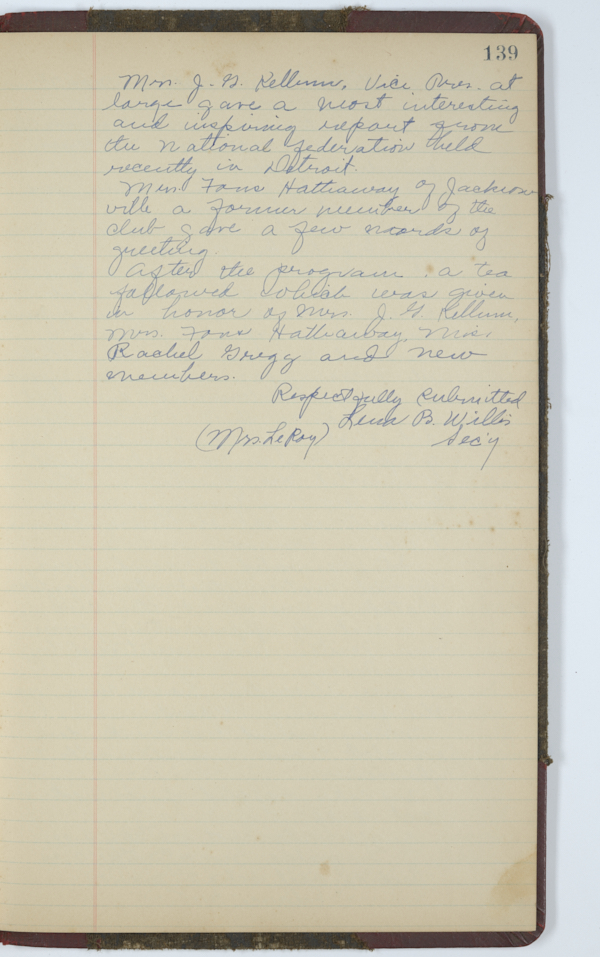 139
Mrs. J. G. Kellum, Vice Pres. at
large gave a most interesting
and inspiring report from
the National Federation held
recently in Detroit.
Mrs. Fons Hathaway of Jackson
ville a former member of the
club gave a few words of
greeting.
After the program a tea
followed which was given
in honor of Mrs. J. G. Kellum,
Mrs. Fons Hathaway, Miss
Rachel Gregg and new
members.
Respectfully submitted
Lena B. Willis
(Mrs LeRoy) Sec'y